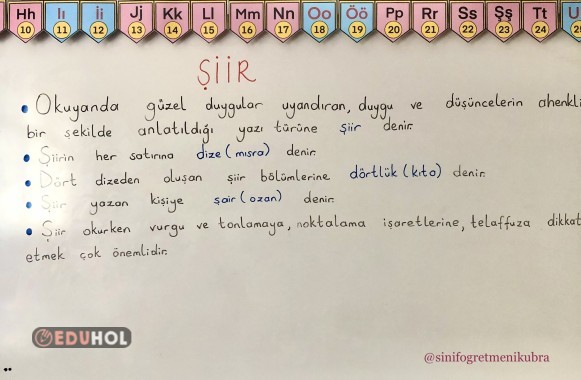 Hh Iı İi Jj Kk Ll Mm Nn Oo Öö Pp Rr Ss Şş Tt U
10 11 12 13 14 15 16 17 18 19 20 21 22 23 24 25
ŞİİR
• Okuyanda güzel duygular uyandıran, duygu ve düşüncelerin ahenkli
bir şekilde anlatıldığı yazı türüne şiir denir.
• Şiirin her satırına dize (mısra) denir.
• Dört dizeden oluşan şiir bölümlerine dörtlük (kıta) denir.
• Şiir yazan kişiye şair (ozan) denir.
• Şiir okurken vurgu ve tonlamaya, noktalama işaretlerine, telaffuza dikkat
etmek çok önemlidir.
EDUHOL
@sinifogretmenikubra